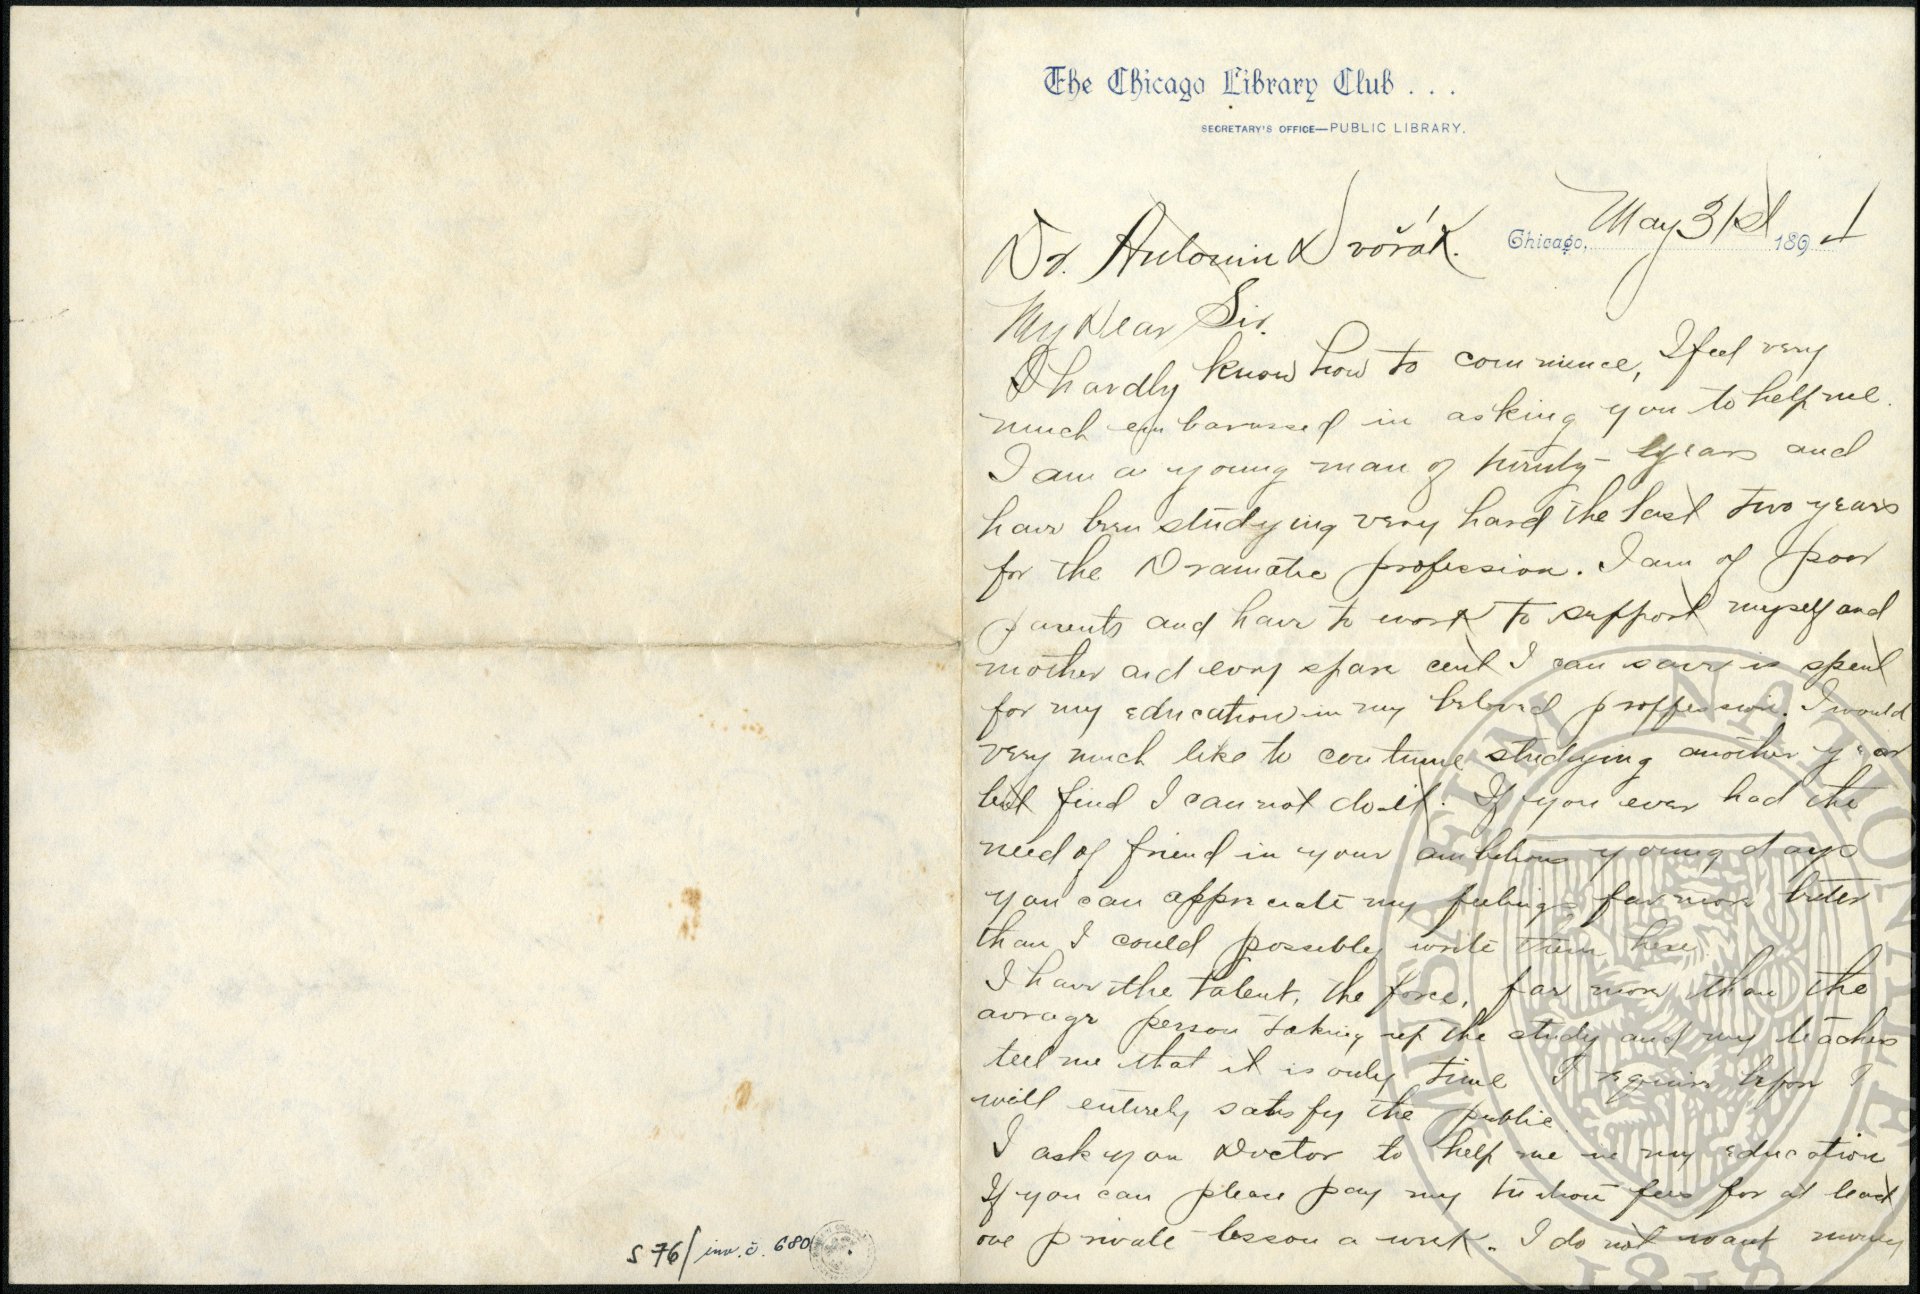 The Chicago Library Club . . .
SECRETARY'S OFFICE—PUBLIC LIBRARY.
Chicago, May 31st 189
Dr. Antonin Dvořák.
My Dear Sir.
I hardly know how to commence, I feel very
much embarassed in asking you to help me.
I am a young man of twenty years and
have been studying very hard the last two years
for the Dramatic profession. I am of poor
parents and have to work to support myself and
mother and every spare cent I can save is spent
for my education in my beloved proffession. I would
very much like to continue studying another year
but find I can not do it. If you ever had the
need of friend in your ambitious young days
you can appreciate my feelings far more better
than I could possibly write them here
I have the talent, the force, far more than the
average person taking up the study and my teachers
tell me that it is only time I require before I
will entirely satisfy the public.
I ask you Doctor to help me in my education
If you can please pay my tuition fees for at least
one private lesson a week. I do not want money
S 76/ inv. č. 680
MUSAEUM NATIONALE
1818